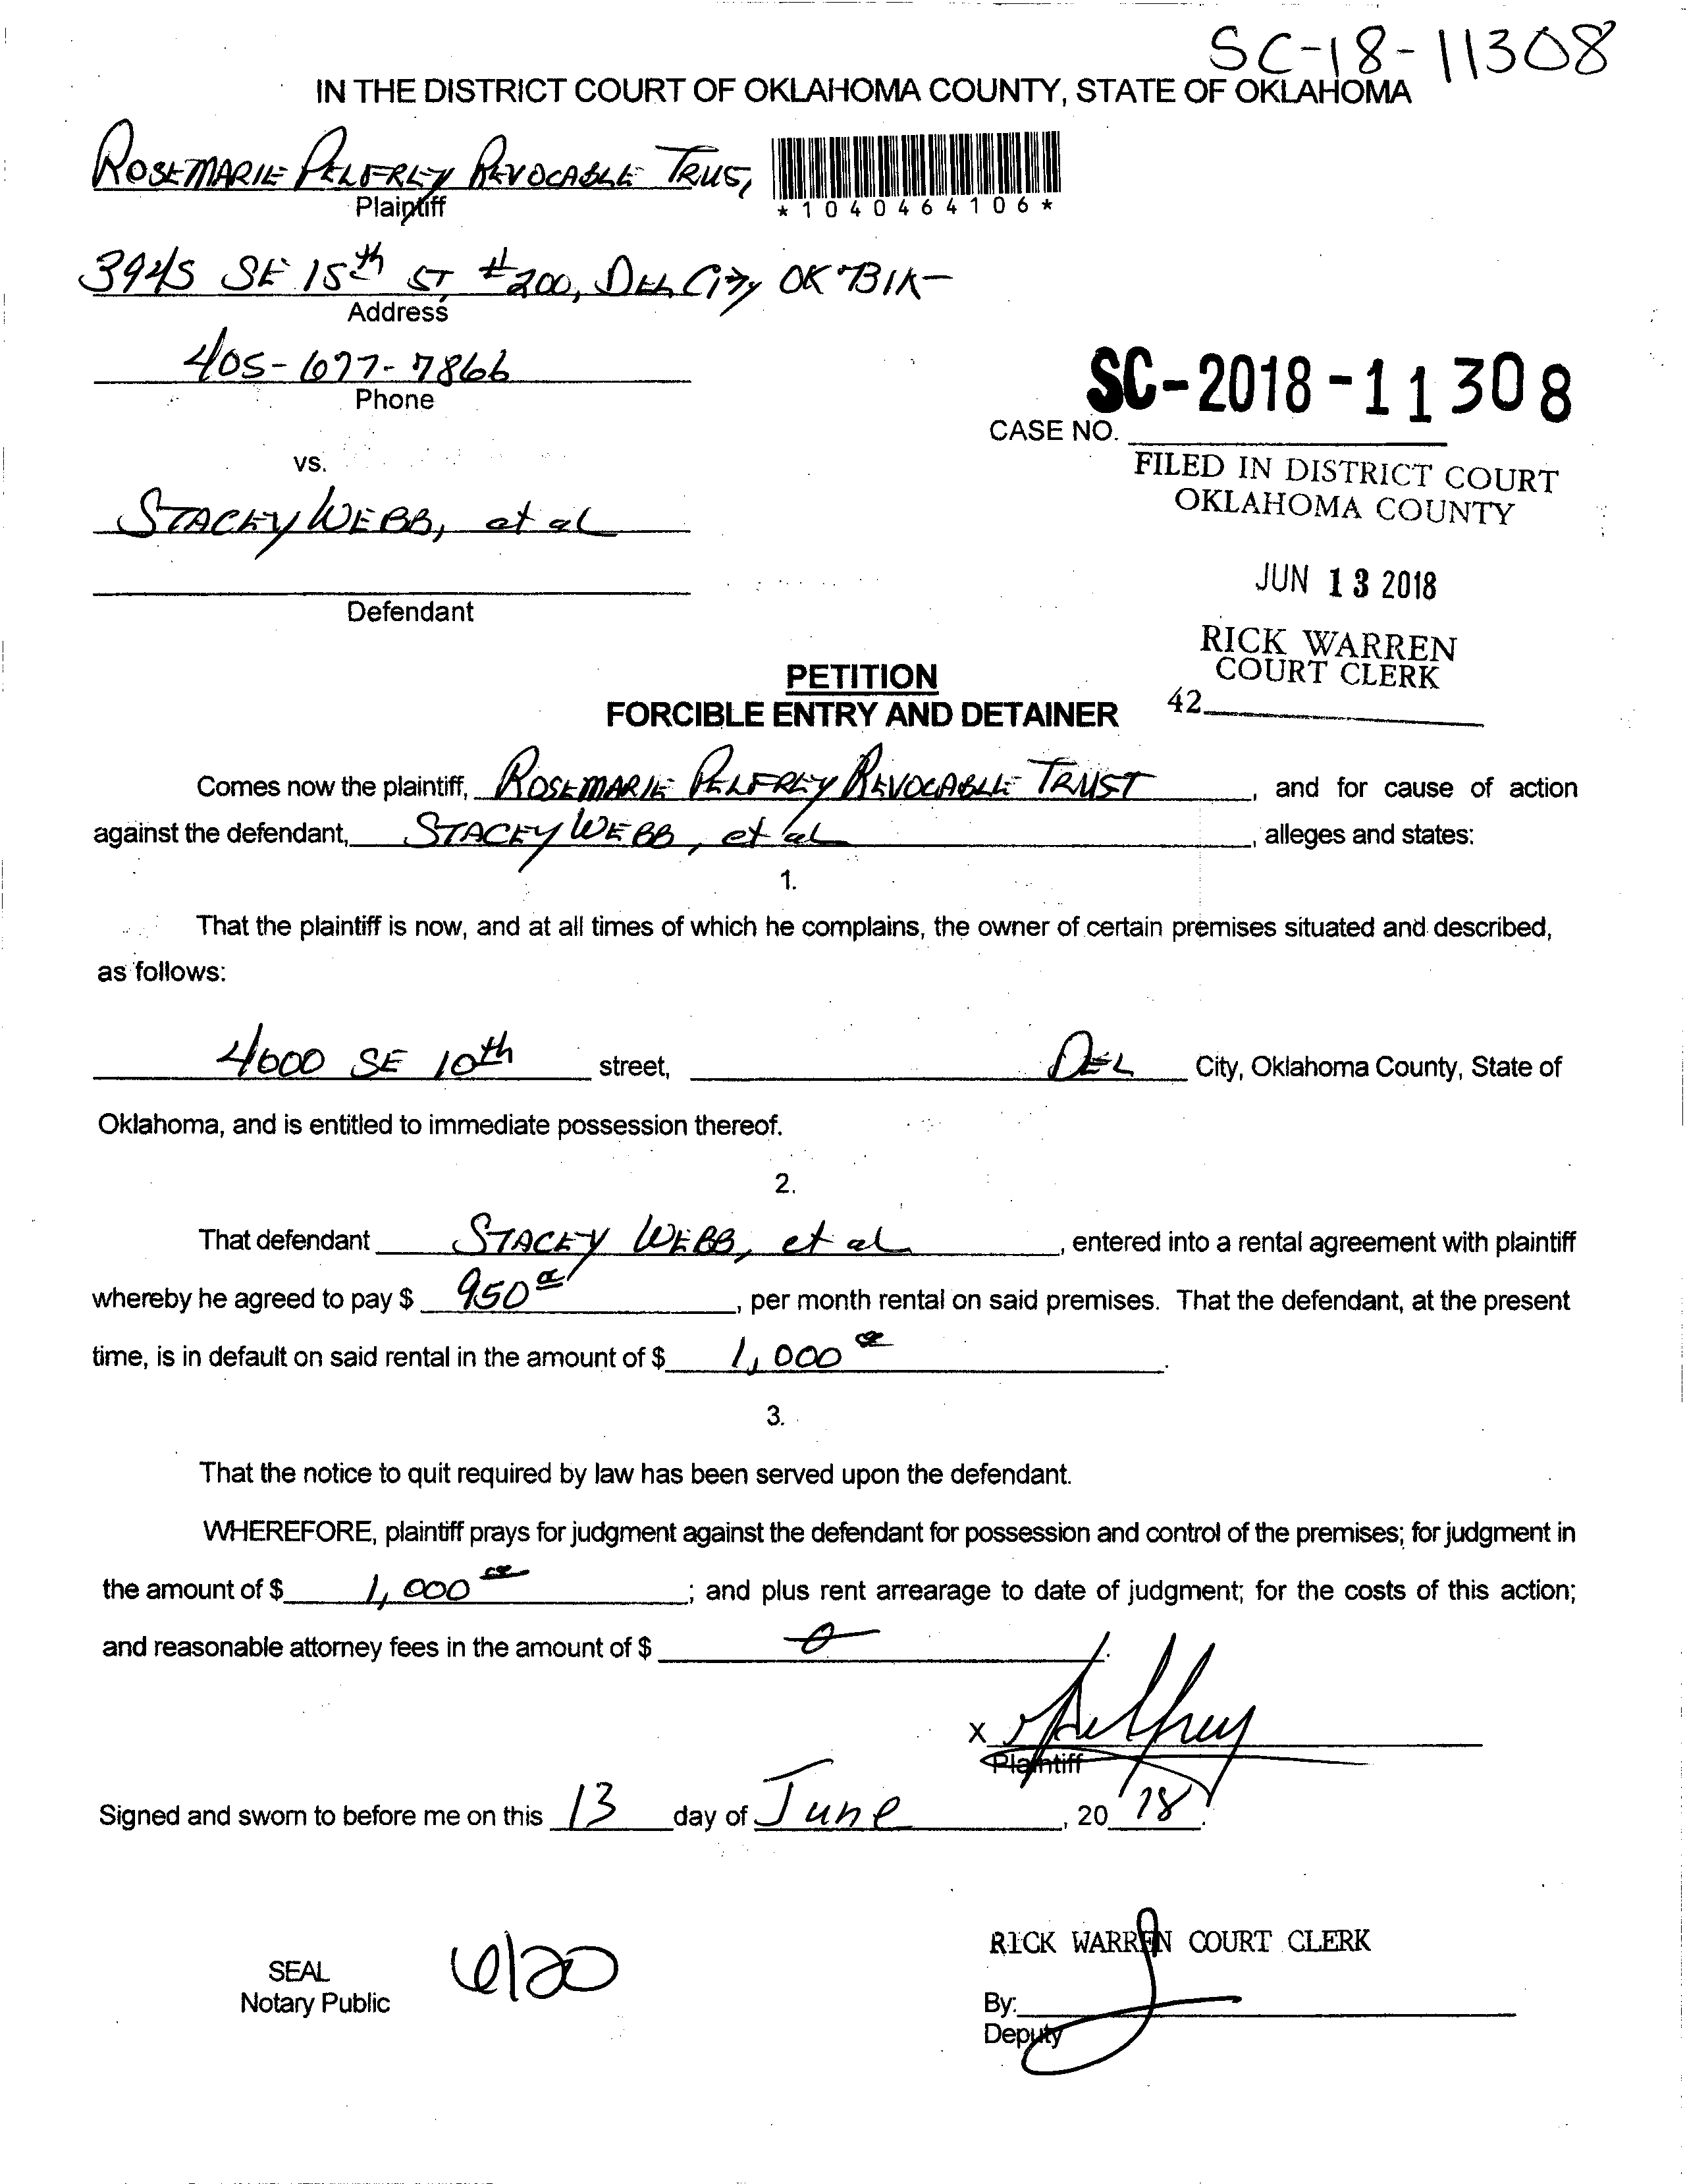 SC-18-11308
IN THE DISTRICT COURT OF OKLAHOMA COUNTY, STATE OF OKLAHOMA
ROSEMARIE PELFREY REVOCABLE TRUST,
Plaintiff
*1040464106*
3945 SE 15th ST, #200, DEL City OK
Address
405-677-7866
Phone
SC-2018-11308
CASE NO.
vs.
FILED IN DISTRICT COURT
OKLAHOMA COUNTY
STACEY WEBB, et al
JUN 13 2018
Defendant
RICK WARREN
COURT CLERK
42
PETITION
FORCIBLE ENTRY AND DETAINER
Comes now the plaintiff, ROSEMARIE PELFREY REVOCABLE TRUST, and for cause of action
against the defendant, STACEY WEBB, et al, alleges and states:
1.
That the plaintiff is now, and at all times of which he complains, the owner of certain premises situated and described,
as follows:
4600 SE 10th street, DEL City, Oklahoma County, State of
Oklahoma, and is entitled to immediate possession thereof.
2.
That defendant STACEY WEBB, et al, entered into a rental agreement with plaintiff
whereby he agreed to pay $ 950, per month rental on said premises. That the defendant, at the present
time, is in default on said rental in the amount of $ 1,000.
3.
That the notice to quit required by law has been served upon the defendant.
WHEREFORE, plaintiff prays for judgment against the defendant for possession and control of the premises; for judgment in
the amount of $ 1,000; and plus rent arrearage to date of judgment; for the costs of this action;
and reasonable attorney fees in the amount of $ 0.
X Pelfrey
Plaintiff
Signed and sworn to before me on this 13 day of June, 20 18.
SEAL
Notary Public
6/20
RICK WARREN COURT CLERK
By:
Deputy